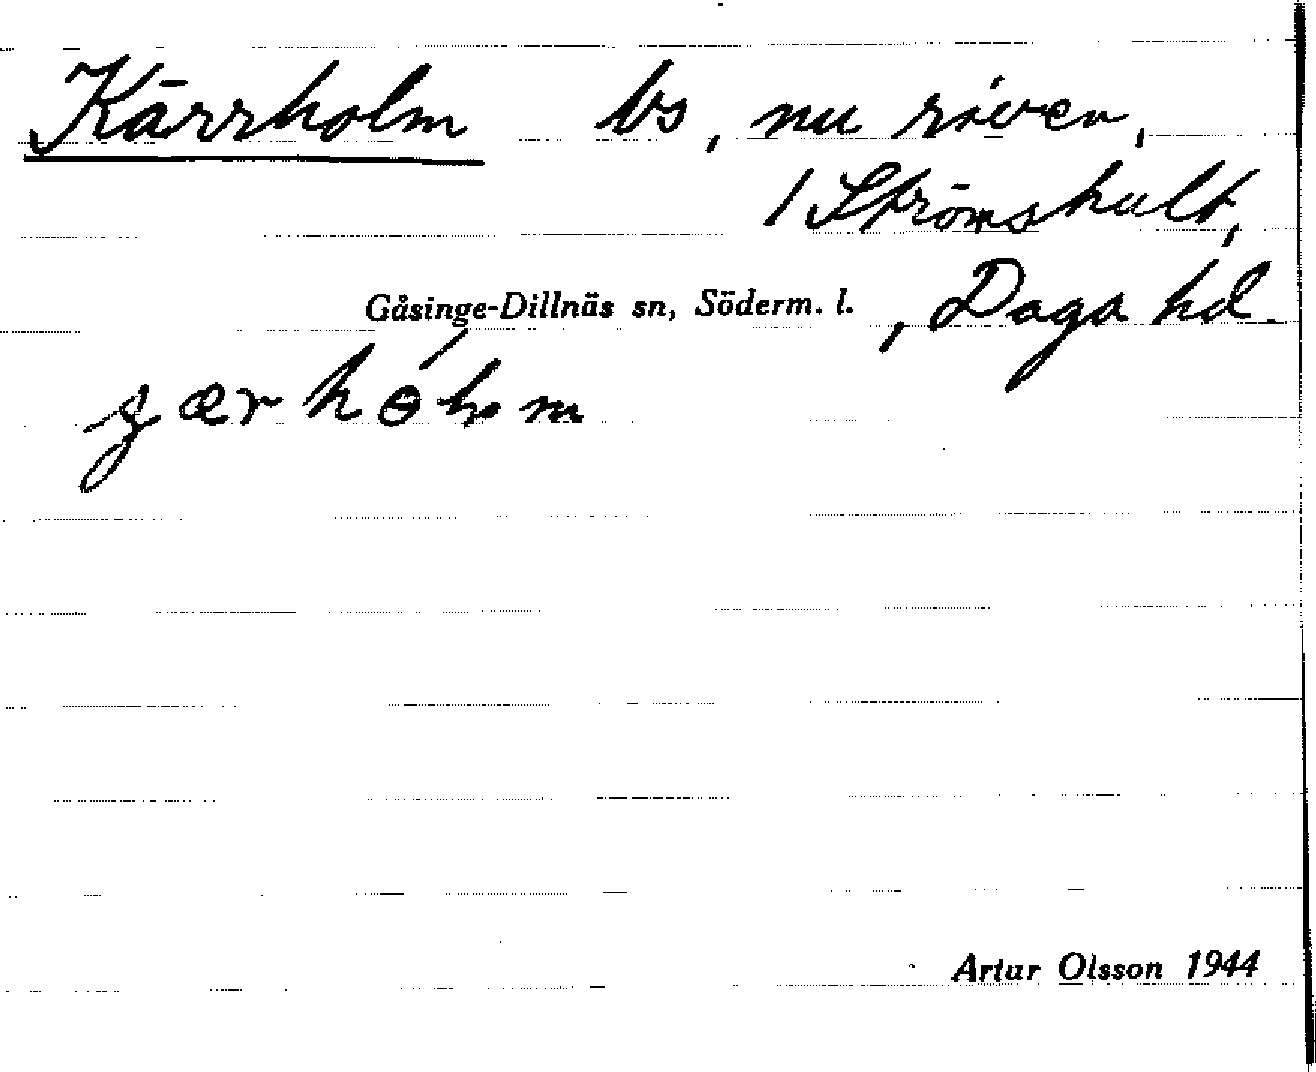 Kärrholm bs, nu riven,
/ Strömshult,
Gåsinge-Dillnäs sn, Söderm. l. , Daga hd.
Artur Olsson 1944